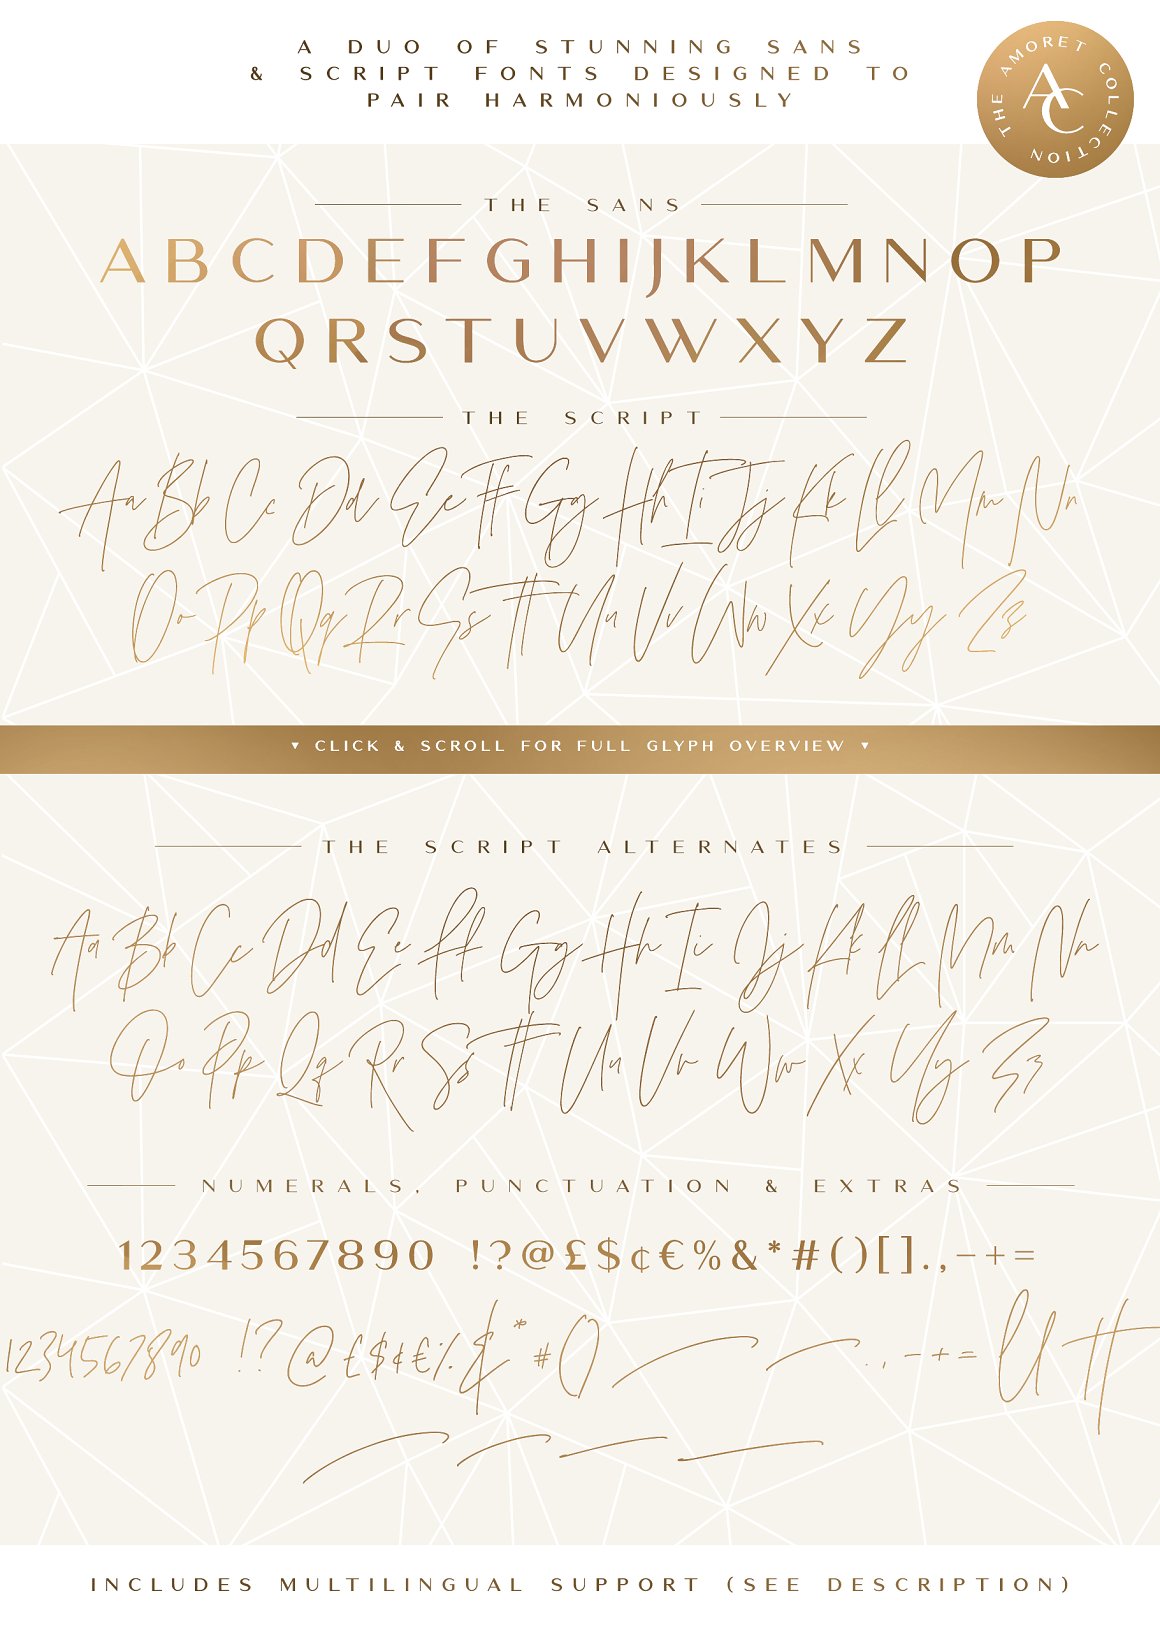 A DUO OF STUNNING SANS
& SCRIPT FONTS DESIGNED TO
PAIR HARMONIOUSLY
THE AMORET COLLECTION
AC
THE SANS
ABCDEFGHIJKLMNOP
QRSTUVWXYZ
THE SCRIPT
Aa Bb Cc Dd Ee Ff Gg Hh Ii Jj Kk Ll Mm Nn
Oo Pp Qq Rr Ss Tt Uu Vv Ww Xx Yy Zz
▼ CLICK & SCROLL FOR FULL GLYPH OVERVIEW ▼
THE SCRIPT ALTERNATES
Aa Bb Cc Dd Ee Ff Gg Hh Ii Jj Kk Ll Mm Nn
Oo Pp Qq Rr Ss Tt Uu Vv Ww Xx Yy Zz
NUMERALS, PUNCTUATION & EXTRAS
1234567890 !?@£$¢€%&*#()[].,-+=
1234567890 !?@£$¢€%&*#() . , - + =
INCLUDES MULTILINGUAL SUPPORT (SEE DESCRIPTION)